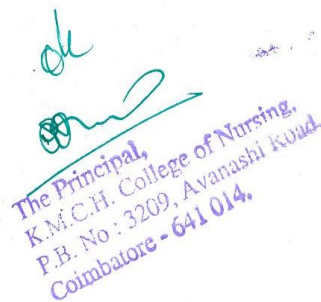 ok
The Principal,
K.M.C.H. College of Nursing,
P.B. No : 3209, Avanashi Road.
Coimbatore - 641 014.